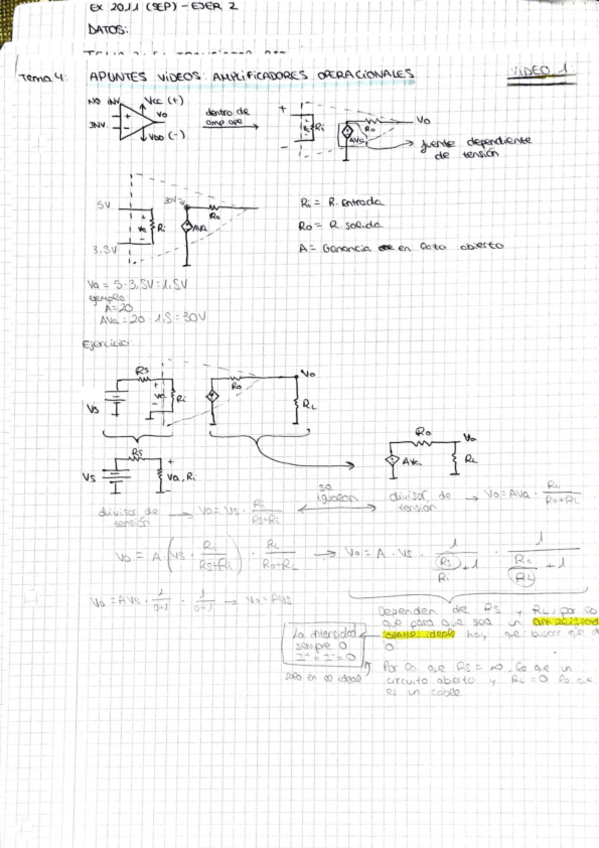 EX 2011 (SEP) - EJER 2
DATOS:
Tema 4: APUNTES VIDEOS: AMPLIFICADORES OPERACIONALES VIDEO 1
NO INV VCC (+)
INV. Vo
VDD (-)
dentro de
+ Ri Ro Vo
- AVa
fuente dependiente
de tensión
5V 30V Ro
Va Ri AVa
3,5V
Ri = R. Entrada
Ro = R salida
A = Ganancia en lazo abierto
Va = 5-3,5V = 1,5V
ejemplo
A=20
AVa = 20 · 1,5 = 30V
Ejercicio:
Rs Ro Vo
Vs Va Ri RL
Rs + Ro Vo
Vs Va, Ri AVa RL
-
divisor de tensión → Va = Vs · Ri/(Rs+Ri) se igualan divisor de tensión → Vo = AVa · RL/(Ro+RL)
Vo = A · (Vs · Ri/(Rs+Ri)) · RL/(Ro+RL) → Vo = A · Vs ·
Vo = AVs · 1/(0+1) · 1/(0+1) → Vo = AVs
Dependen de Rs y RL, por lo
que para que sea un
ideal hay que buscar que
0
La intensidad
siempre 0
I⁺ = I⁻ = 0
solo en ideal
Por lo que Rs = ∞, lo que un
circuito abierto y RL = 0 lo que
es un cable